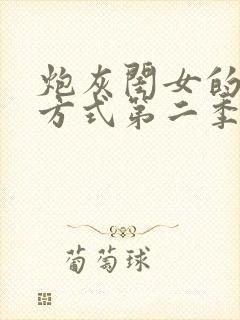 炮灰闺女的
方式第二季
葡萄球